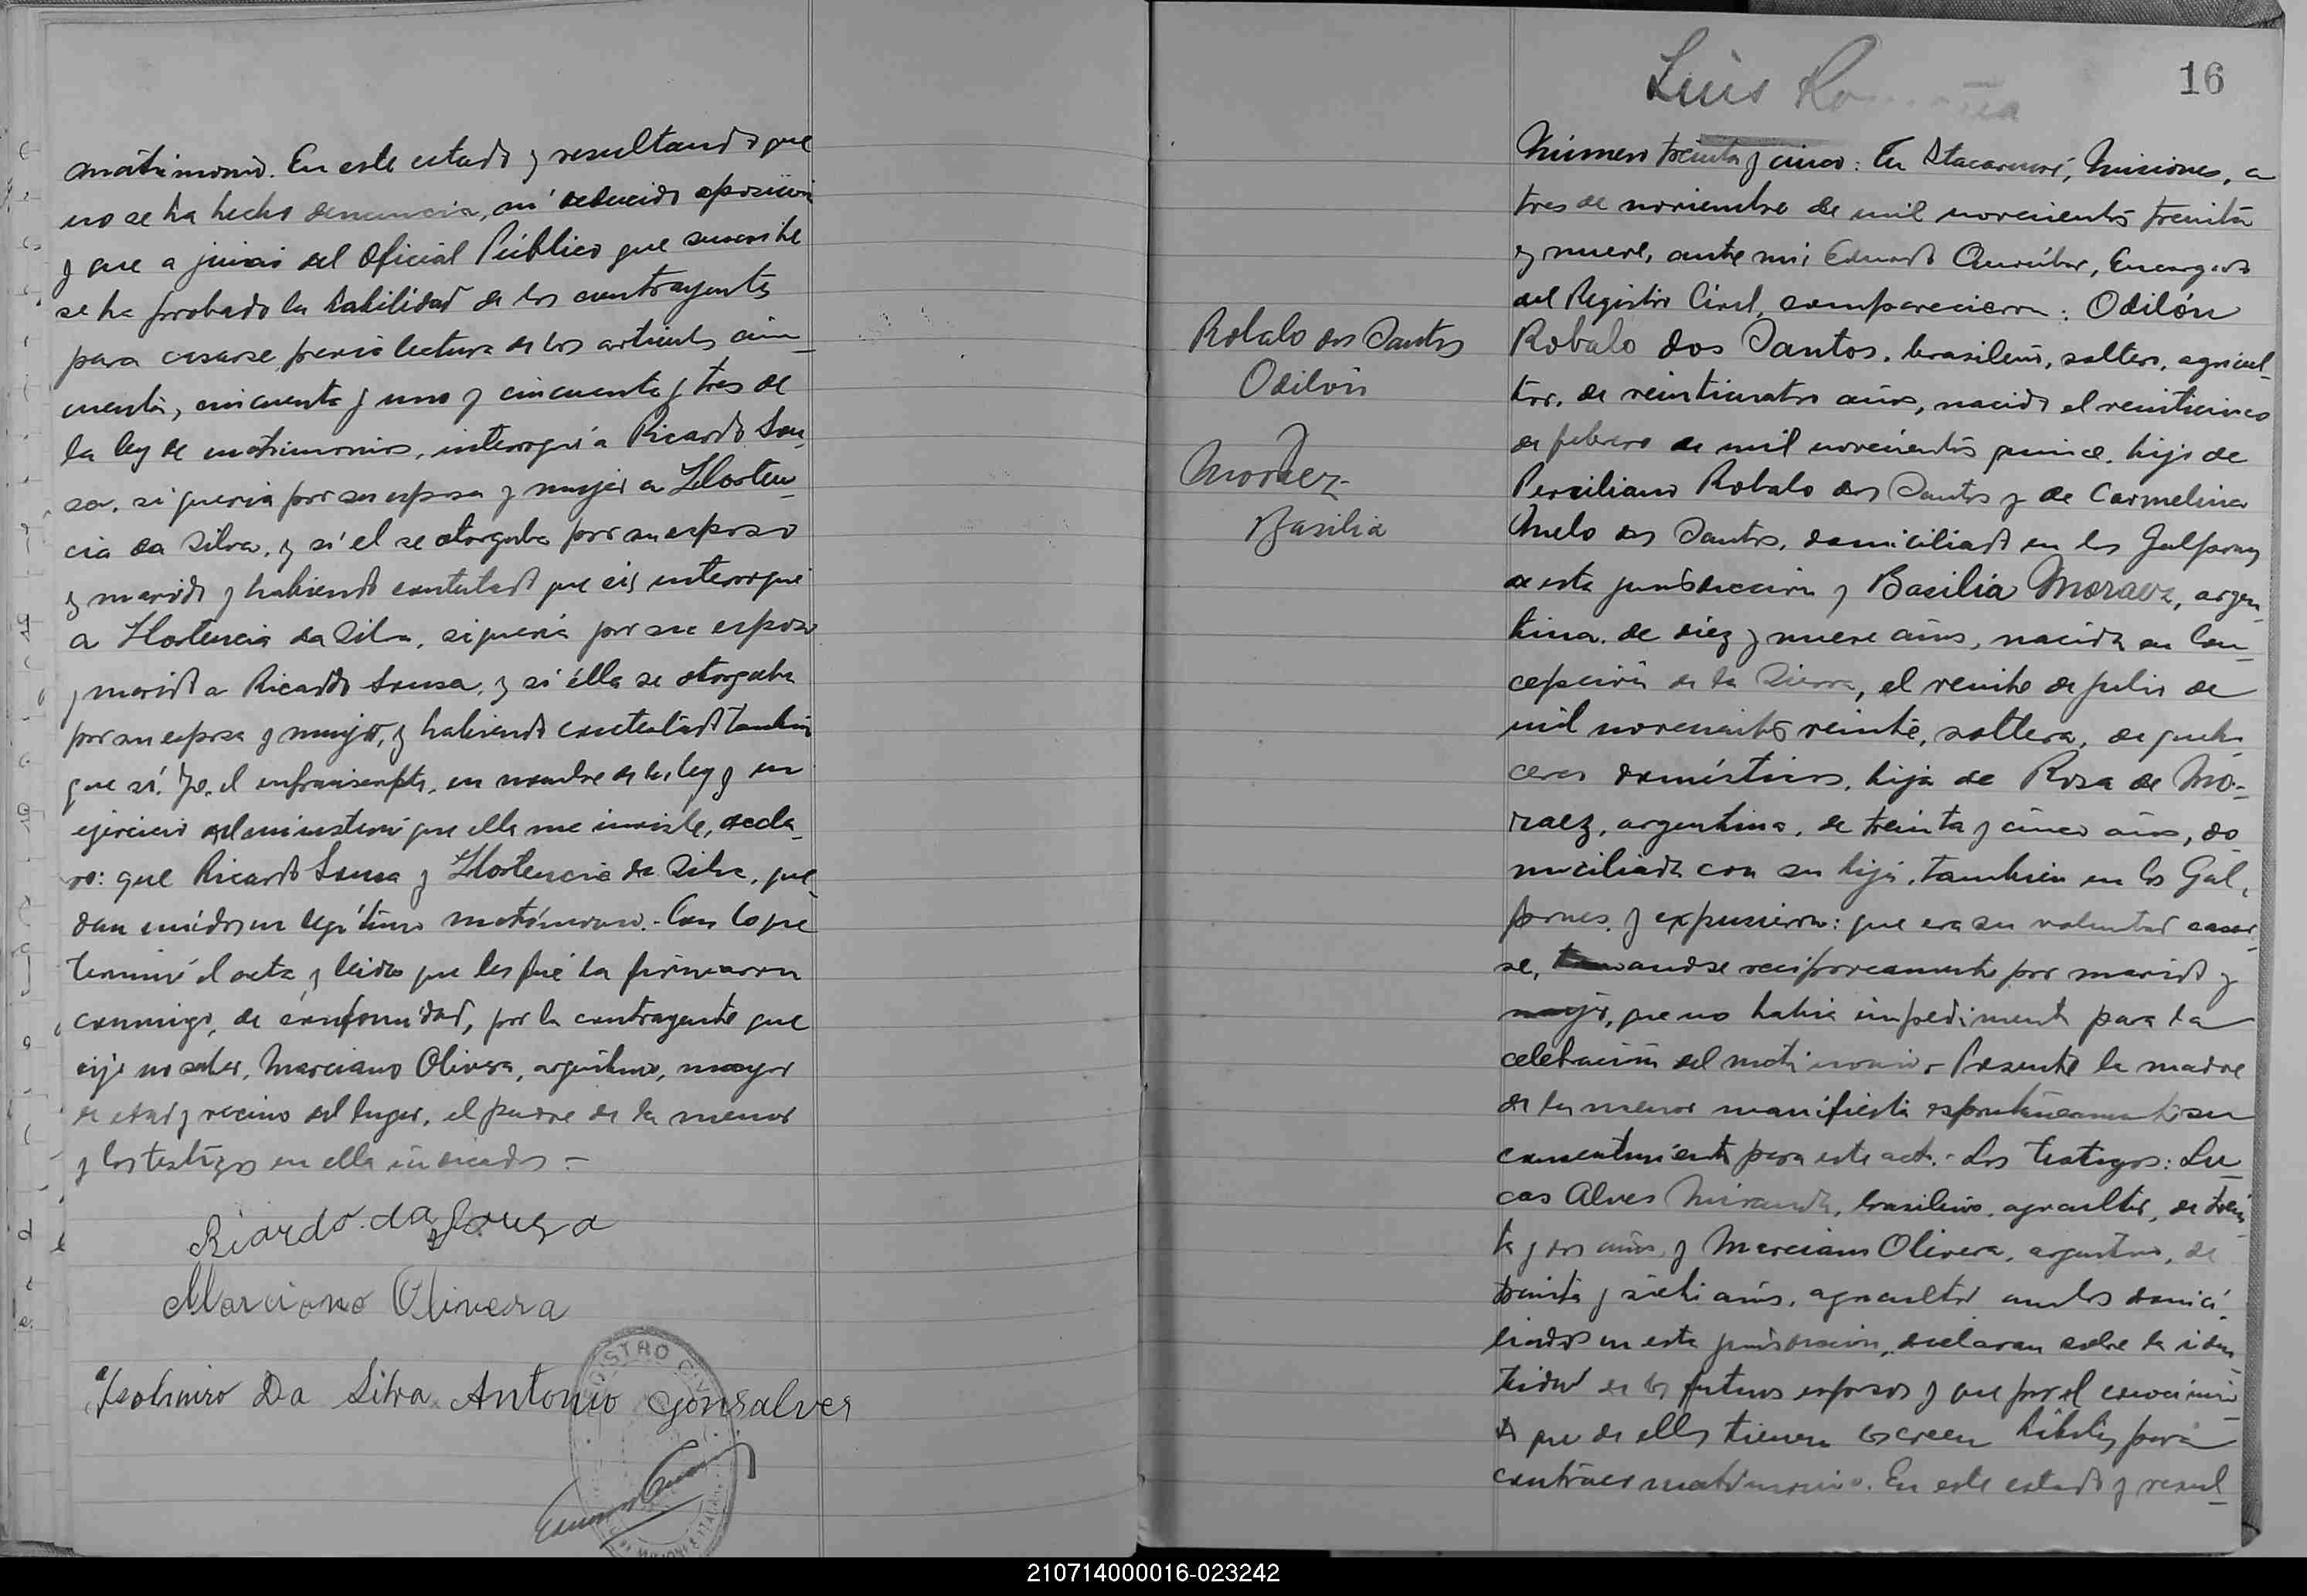 matrimonio. En este estado y resultando que
no se ha hecho denuncia, ni deducido oposición
y que a juicio del Oficial Público que suscribe
se ha probado la habilidad de los contrayentes
para casarse, previa lectura de los artículos cin_
cuenta, cincuenta y uno y cincuenta y tres de
la ley de matrimonios, interrogué a Ricardo Sou_
sa, si quería por su esposa y mujer a Hosten_
cia da Silva, y si él se otorgaba por su esposo
y marido y habiendo contestado que sí, interrogué
a Hostencia da Silva, si quería por su esposo
y marido a Ricardo Sousa, y si élla se otorgaba
por su esposa y mujer, y habiendo contestado también
que sí. Yo, el infrainscripto, en nombre de la ley y en
ejercicio del ministerio que ella me inviste, decla_
ro: que Ricardo Sousa y Hostencia da Silva, que_
dan unidos en legítimo matrimonio.- Con lo que
terminó el acta y leída que les fué la firmaron
conmigo, de conformidad, por la contrayente que
dijo no saber, Marciano Olivera, argentino, mayor
de edad y vecino del lugar, el padre de la menor
y los testigos en ella indicados.-
Ricardo da Souza
Marciano Olivera
Da Silva Antonio Gonsalves
REGISTRO CIVIL
Luis
16
Robalo dos Santos
Odilón
Moraez
Basilia
Número treinta y cinco: En Itacaruaré, Misiones, a
tres de noviembre de mil novecientos treinta
y nueve, ante mí, Eduardo Encargado
del Registro Civil, comparecieron: Odilón
Robalo dos Santos, brasileño, soltero, agricul_
tor, de veinticuatro años, nacido el veinticinco
de febrero de mil novecientos quince, hijo de
Perciliano Robalo dos Santos y de Carmelina
Melo dos Santos, domiciliado en los Galpones
de esta jurisdicción y Basilia Moraez, argen_
tina, de diez y nueve años, nacida en Con_
cepción de la Sierra, el veinte de julio de
mil novecientos veinte, soltera, de queha_
ceres domésticos, hija de Rosa de Mo_
raez, argentina, de treinta y cinco años, do_
miciliada con su hija, también en los Gal_
pones, y expusieron: que era su voluntad casar_
se, tomandose recíprocamente por marido y
mujer, que no había impedimento para la
celebración del matrimonio.- Presente la madre
de la menor manifiesta espontáneamente su
consentimiento para este acto.- Los testigos: Lu_
cas Alves Miranda, brasilero, agricultor, de trein_
ta y dos años, y Marciano Olivera, argentino, de
treinta y siete años, agricultor ambos domici_
liados en esta jurisdicción, declaran sobre la iden_
tidad de los futuros esposos y que por el conocimien_
to que de ellos tienen los creen hábiles para
contraer matrimonio. En este estado y resul_
210714000016-023242